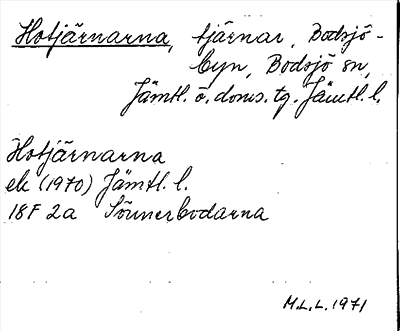 Hotjärnarna, tjärnar, Bodsjö-
byn, Bodsjö sn,
Jämtl. ö. doms. tg. Jämtl. l.
Hotjärnarna
ek (1970) Jämtl. l.
18F 2a Sönnerbodarna
M.L.L. 1971